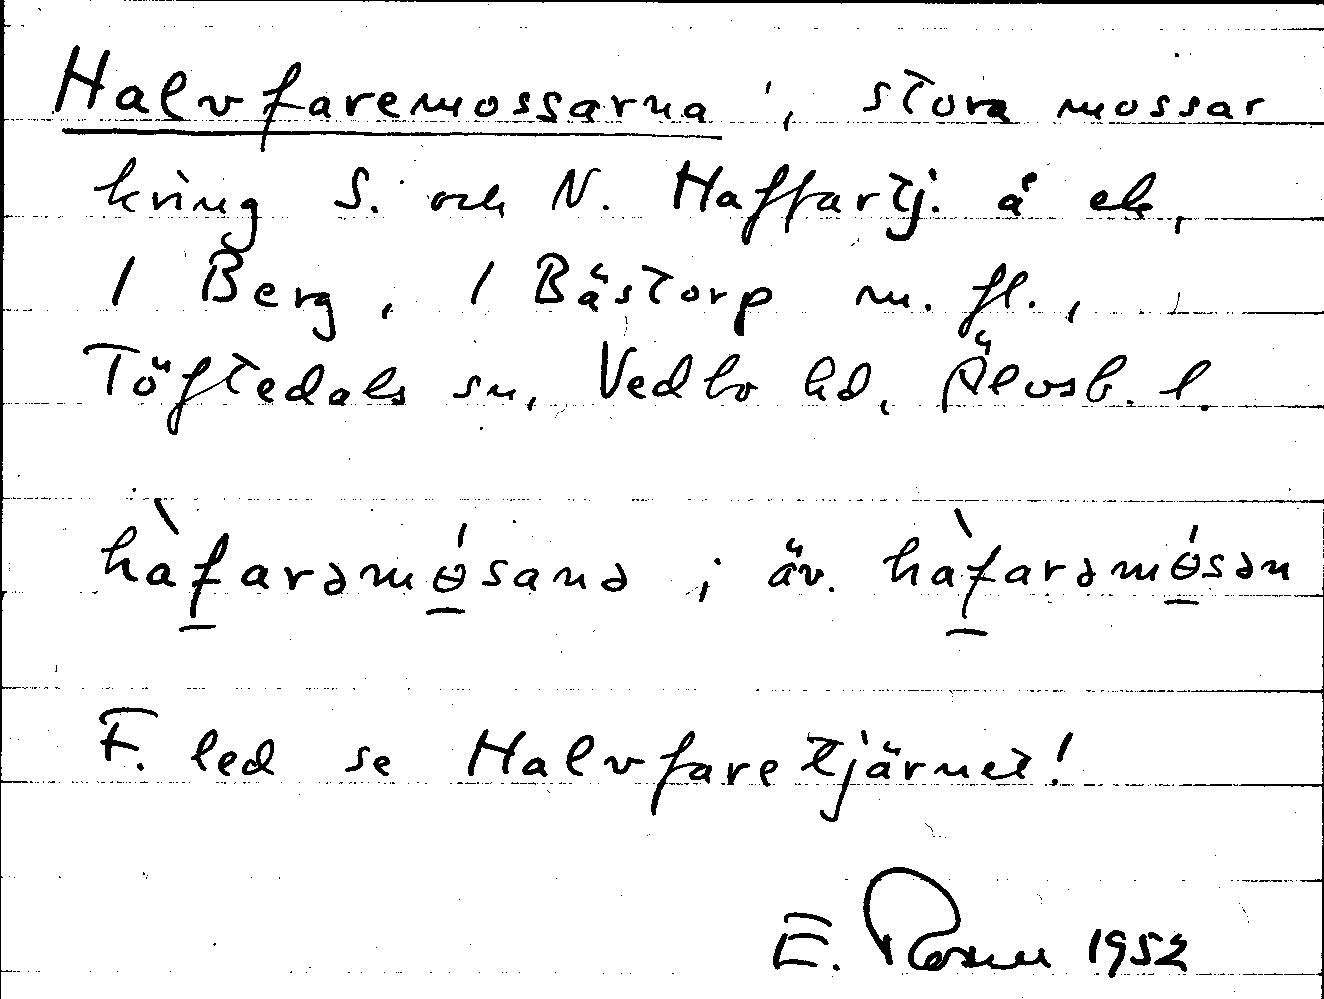 Halvfaremossarna, stora mossar
kring S. och N. Haffartj. å ek,
1 Berg, 1 Bästorp m. fl.,
Töftedals sn, Vedbo hd, Älvsb. l.
hàfarəmɵ́sanə ; äv. hàfarəmɵ́sən
F. led se Halvfaretjärnet!
E. 1952